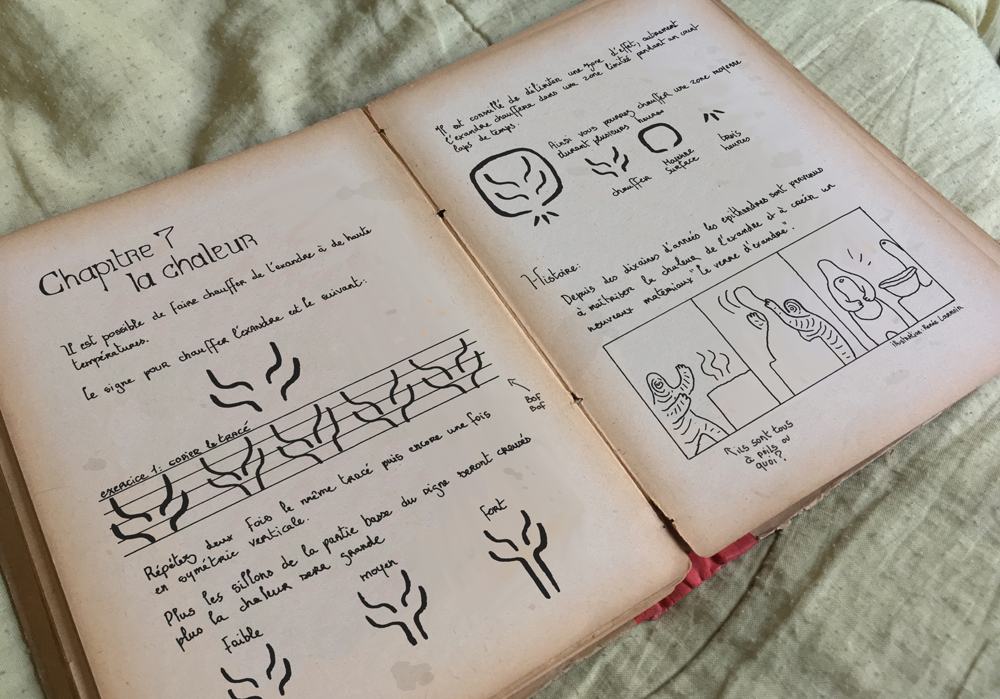 Chapitre 7
la chaleur
Il est possible de faire chauffer de l'exandre à de haute
températures.
Le signe pour chauffer l'exandre est le suivant:
exercice 1: copier le tracé
Bof
Bof
Répétez deux fois le même tracé puis encore une fois
en symétrie verticale.
Plus les sillons de la partie basse du signe seront creusés
plus la chaleur sera grande
Faible
moyen
Fort
Il est conseillé de délimiter une zone d'effet, autrement
l'exandre chauffera dans une zone limité pendant un court
laps de temps.
Ainsi vous pourrez chauffer une zone moyenne
durant plusieurs heures
chauffer
Moyenne
surface
trois
heures
Histoire:
Depuis des dizains d'années les epithandres sont parvenus
à maîtriser la chaleur de l'exandre et à créer un
nouveau materiaux "le verre d'exandre".
illustration:
ils sont tous
à poils ou
quoi?